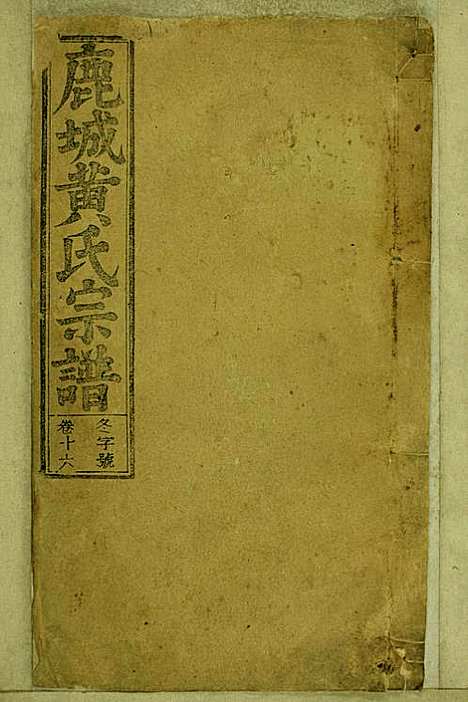 鹿城黄氏宗譜
冬字號
卷十六